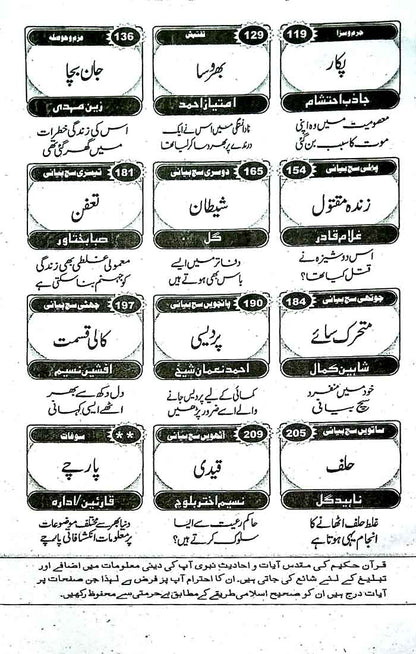 119 جرم و سزا
پکار
جاذب احتشام
معصومیت میں وہ اپنی
موت کا سبب بن گئی
129 تفتیش
بھروسا
امتیاز احمد
نادانستگی میں اس نے ایک
درندے پر بھروسا کر لیا تھا
136 عزم و حوصلہ
جان بچا
زین مہدی
اس کی زندگی خطرات
میں گھر گئی تھی
154 پہلی سچ بیانی
زندہ مقتول
غلام قادر
اس دوشیزہ نے
قتل کیا تھا؟
165 دوسری سچ بیانی
شیطان
گل
دفاتر میں ایسے
باس بھی ہوتے ہیں
181 تیسری سچ بیانی
تعفن
صبا بختاور
معمولی غلطی بھی زندگی
کو جہنم بنا سکتی ہے
184 چوتھی سچ بیانی
متحرک سائے
شاہین کمال
خود میں منفرد
سچ بیانی
190 پانچویں سچ بیانی
پردیسی
احمد نعمان شیخ
کمائی کے لیے پردیس جانے
والے اسے ضرور پڑھیں
197 چھٹی سچ بیانی
کالی قسمت
افشین نسیم
دل دکھ سے بھر
اٹھے ایسی کہانی
205 ساتویں سچ بیانی
حلف
ناہید گل
غلط حلف اٹھانے کا
انجام یہی ہوتا ہے
209 آٹھویں سچ بیانی
قیدی
نسیم اختر بلوچ
حاکم رعیت سے ایسا
سلوک کرتے ہیں؟
** سوغات
پارچے
قارئین/ادارہ
دنیا بھر سے مختلف موضوعات
پر معلومات انکشافاتی پارچے
قرآن حکیم کی مقدس آیات و احادیث نبوی آپ کی دینی معلومات میں اضافے اور
تبلیغ کے لئے شائع کی جاتی ہیں۔ ان کا احترام آپ پر فرض ہے لہٰذا جن صفحات پر
آیات درج ہیں ان کو صحیح اسلامی طریقے کے مطابق بے حرمتی سے محفوظ رکھیں۔